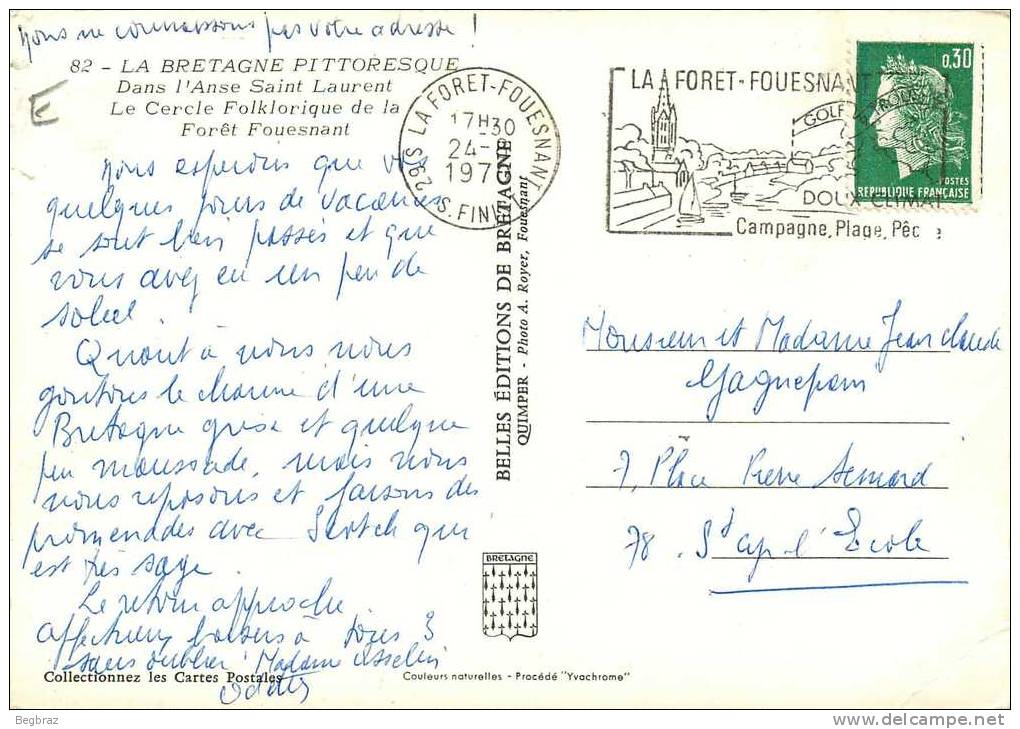 nous ne connaissons pas votre adresse !
82 - LA BRETAGNE PITTORESQUE
Dans l'Anse Saint Laurent
Le Cercle Folklorique de la
Forêt Fouesnant
E
nous espérons que vos
quelques jours de vacances
se sont bien passés et que
vous avez eu un peu de
soleil.
Quant à nous nous
goutons le charme d'une
Bretagne grise et quelque
peu maussade, mais nous
nous reposons et faisons des
promenades avec Scotch qui
est très sage.
Le retour approche.
Affectueux baisers à tous 3
sans oublier Madame Asselin
Collectionnez les Cartes Postales
LA FORET-FOUESNANT
17H30
24-
197
29 S
S. FINV
BELLES ÉDITIONS DE BRETAGNE
QUIMPER - Photo A. Royer, Fouesnant
BRETAGNE
Couleurs naturelles - Procédé "Yvachrome"
LA FORET-FOUESNANT
GOLF
DOUX CLIMAT
Campagne, Plage, Pêc e
0,30
POSTES
REPUBLIQUE FRANÇAISE
Monsieur et Madame Jean Claude
Gagnepain
7, Place Pierre Semard
78. St Cyr l'Ecole
Begbraz
www.delcampe.net